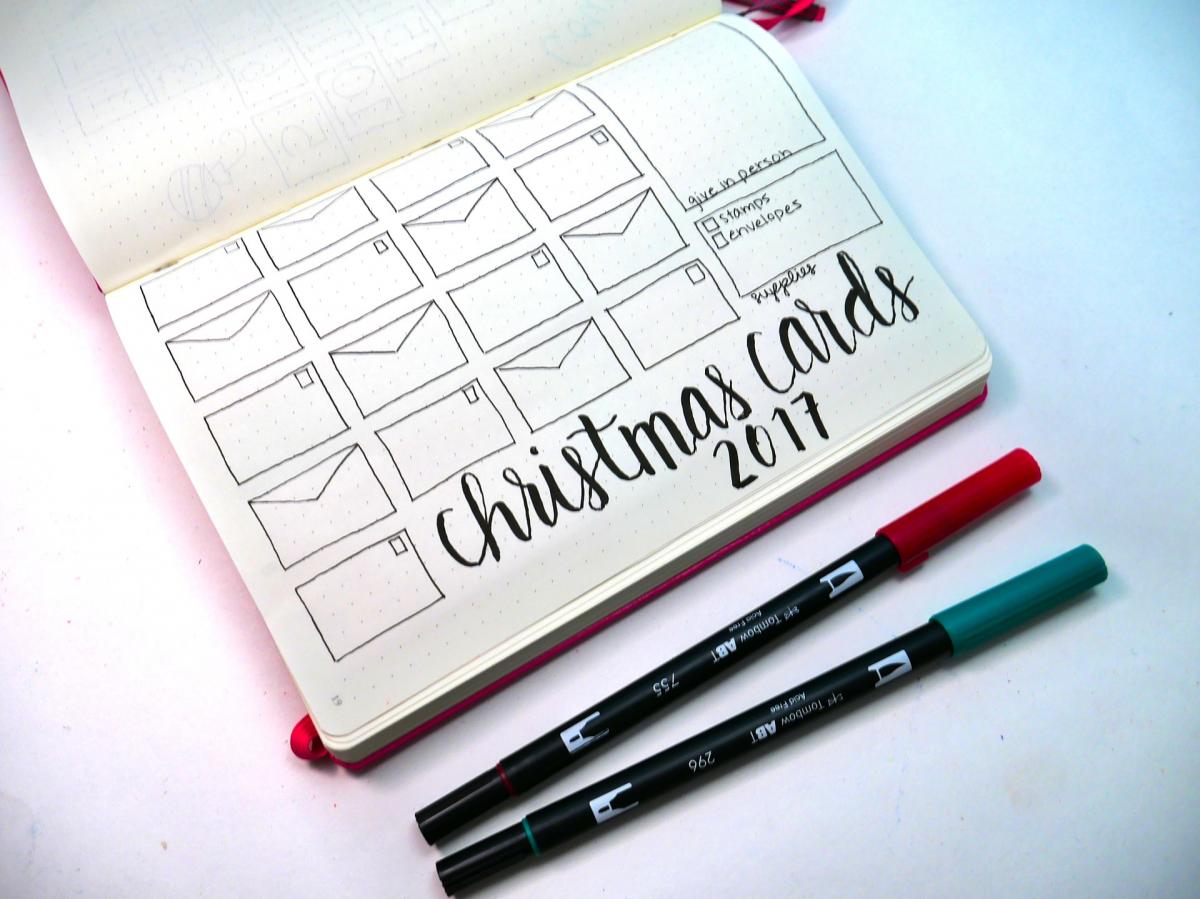 give in person
stamps
envelopes
supplies
christmas cards
2017
19
Tombow ABT
Acid Free
755
Tombow ABT
Acid Free
296